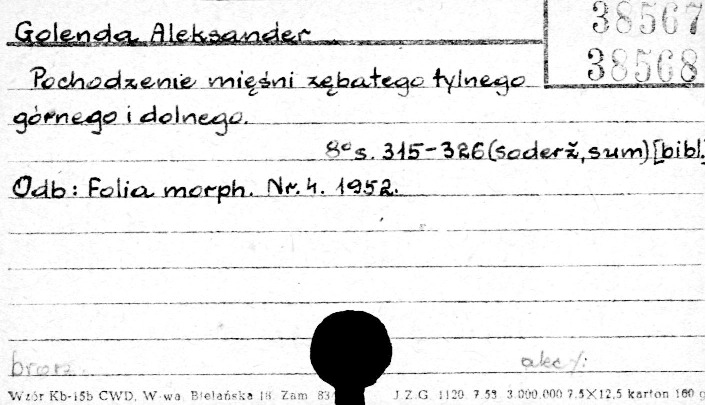 38567
Golenda Aleksander
38568
Pochodzenie mięśni zębatego tylnego
górnego i dolnego.
8° s. 315-326 (soderž, sum) [bibl.]
Odb: Folia morph. Nr. 4. 1952.
Wzór Kb-15b CWD, W-wa, Bielańska 18. Zam. 83 J.Z.G. 1120 7.53. 3.000.000 7,5×12,5 karton 160 g